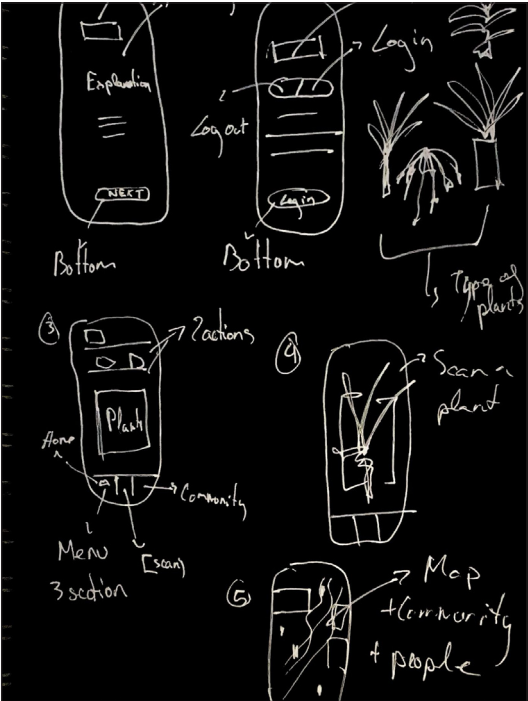 Explanation
NEXT
Bottom
Login
Log out
Login
Bottom
Type of
plants
3
2 actions
Plant
Home
Community
Menu
3 section
[scan]
4
Scan a
plant
5
Map
+ Community
+ people